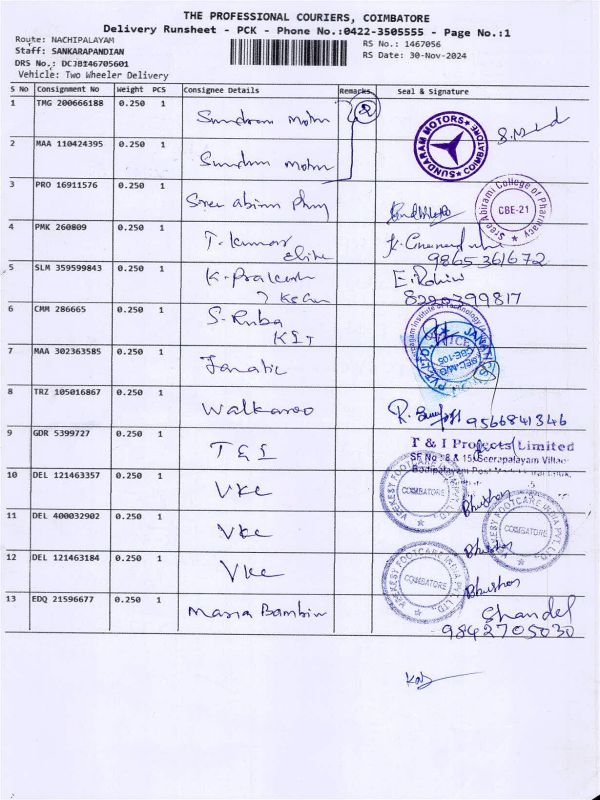 THE PROFESSIONAL COURIERS, COIMBATORE
Delivery Runsheet - PCK - Phone No.:0422-3505555 - Page No.:1
Route: NACHIPALAYAM
RS No.: 1467056
Staff: SANKARAPANDIAN
RS Date: 30-Nov-2024
DRS No.: DCJBI46705601
Vehicle: Two Wheeler Delivery
S No Consignment No Weight PCS Consignee Details Remarks Seal & Signature
1 TMG 200666188 0.250 1 Sundram Motor 2 SUNDARAM MOTORS COIMBATORE
2 MAA 110424395 0.250 1 Sundrm Motor
3 PRO 16911576 0.250 1 Sree abirami Sree Abirami College of Pharmacy CBE-21
4 PMK 260809 0.250 1 T. Kumar
elite 9865361672
5 SLM 359599843 0.250 1 K. Prakash E. Rohini
8220799817
6 CMM 286665 0.250 1 S. Ruba
KIT Institute of Technology
7 MAA 302363585 0.250 1 Janatic PVT. LTD. CBE-105
8 TRZ 105016867 0.250 1 Walkaroo 9566841346
9 GDR 5399727 0.250 1 T & I T & I Projects Limited
SF No : 8 & 15, Seerapalayam Village
10 DEL 121463357 0.250 1 VKC VEEKESY FOOTCARE INDIA PVT. LTD. COIMBATORE Bhushan
11 DEL 400032902 0.250 1 VKC Bhushan VEEKESY FOOTCARE INDIA PVT. LTD. COIMBATORE
12 DEL 121463184 0.250 1 VKC VEEKESY FOOTCARE INDIA PVT. LTD. COIMBATORE Bhushan
13 EDQ 21596677 0.250 1 Maria Bambin Chandel
9842705030